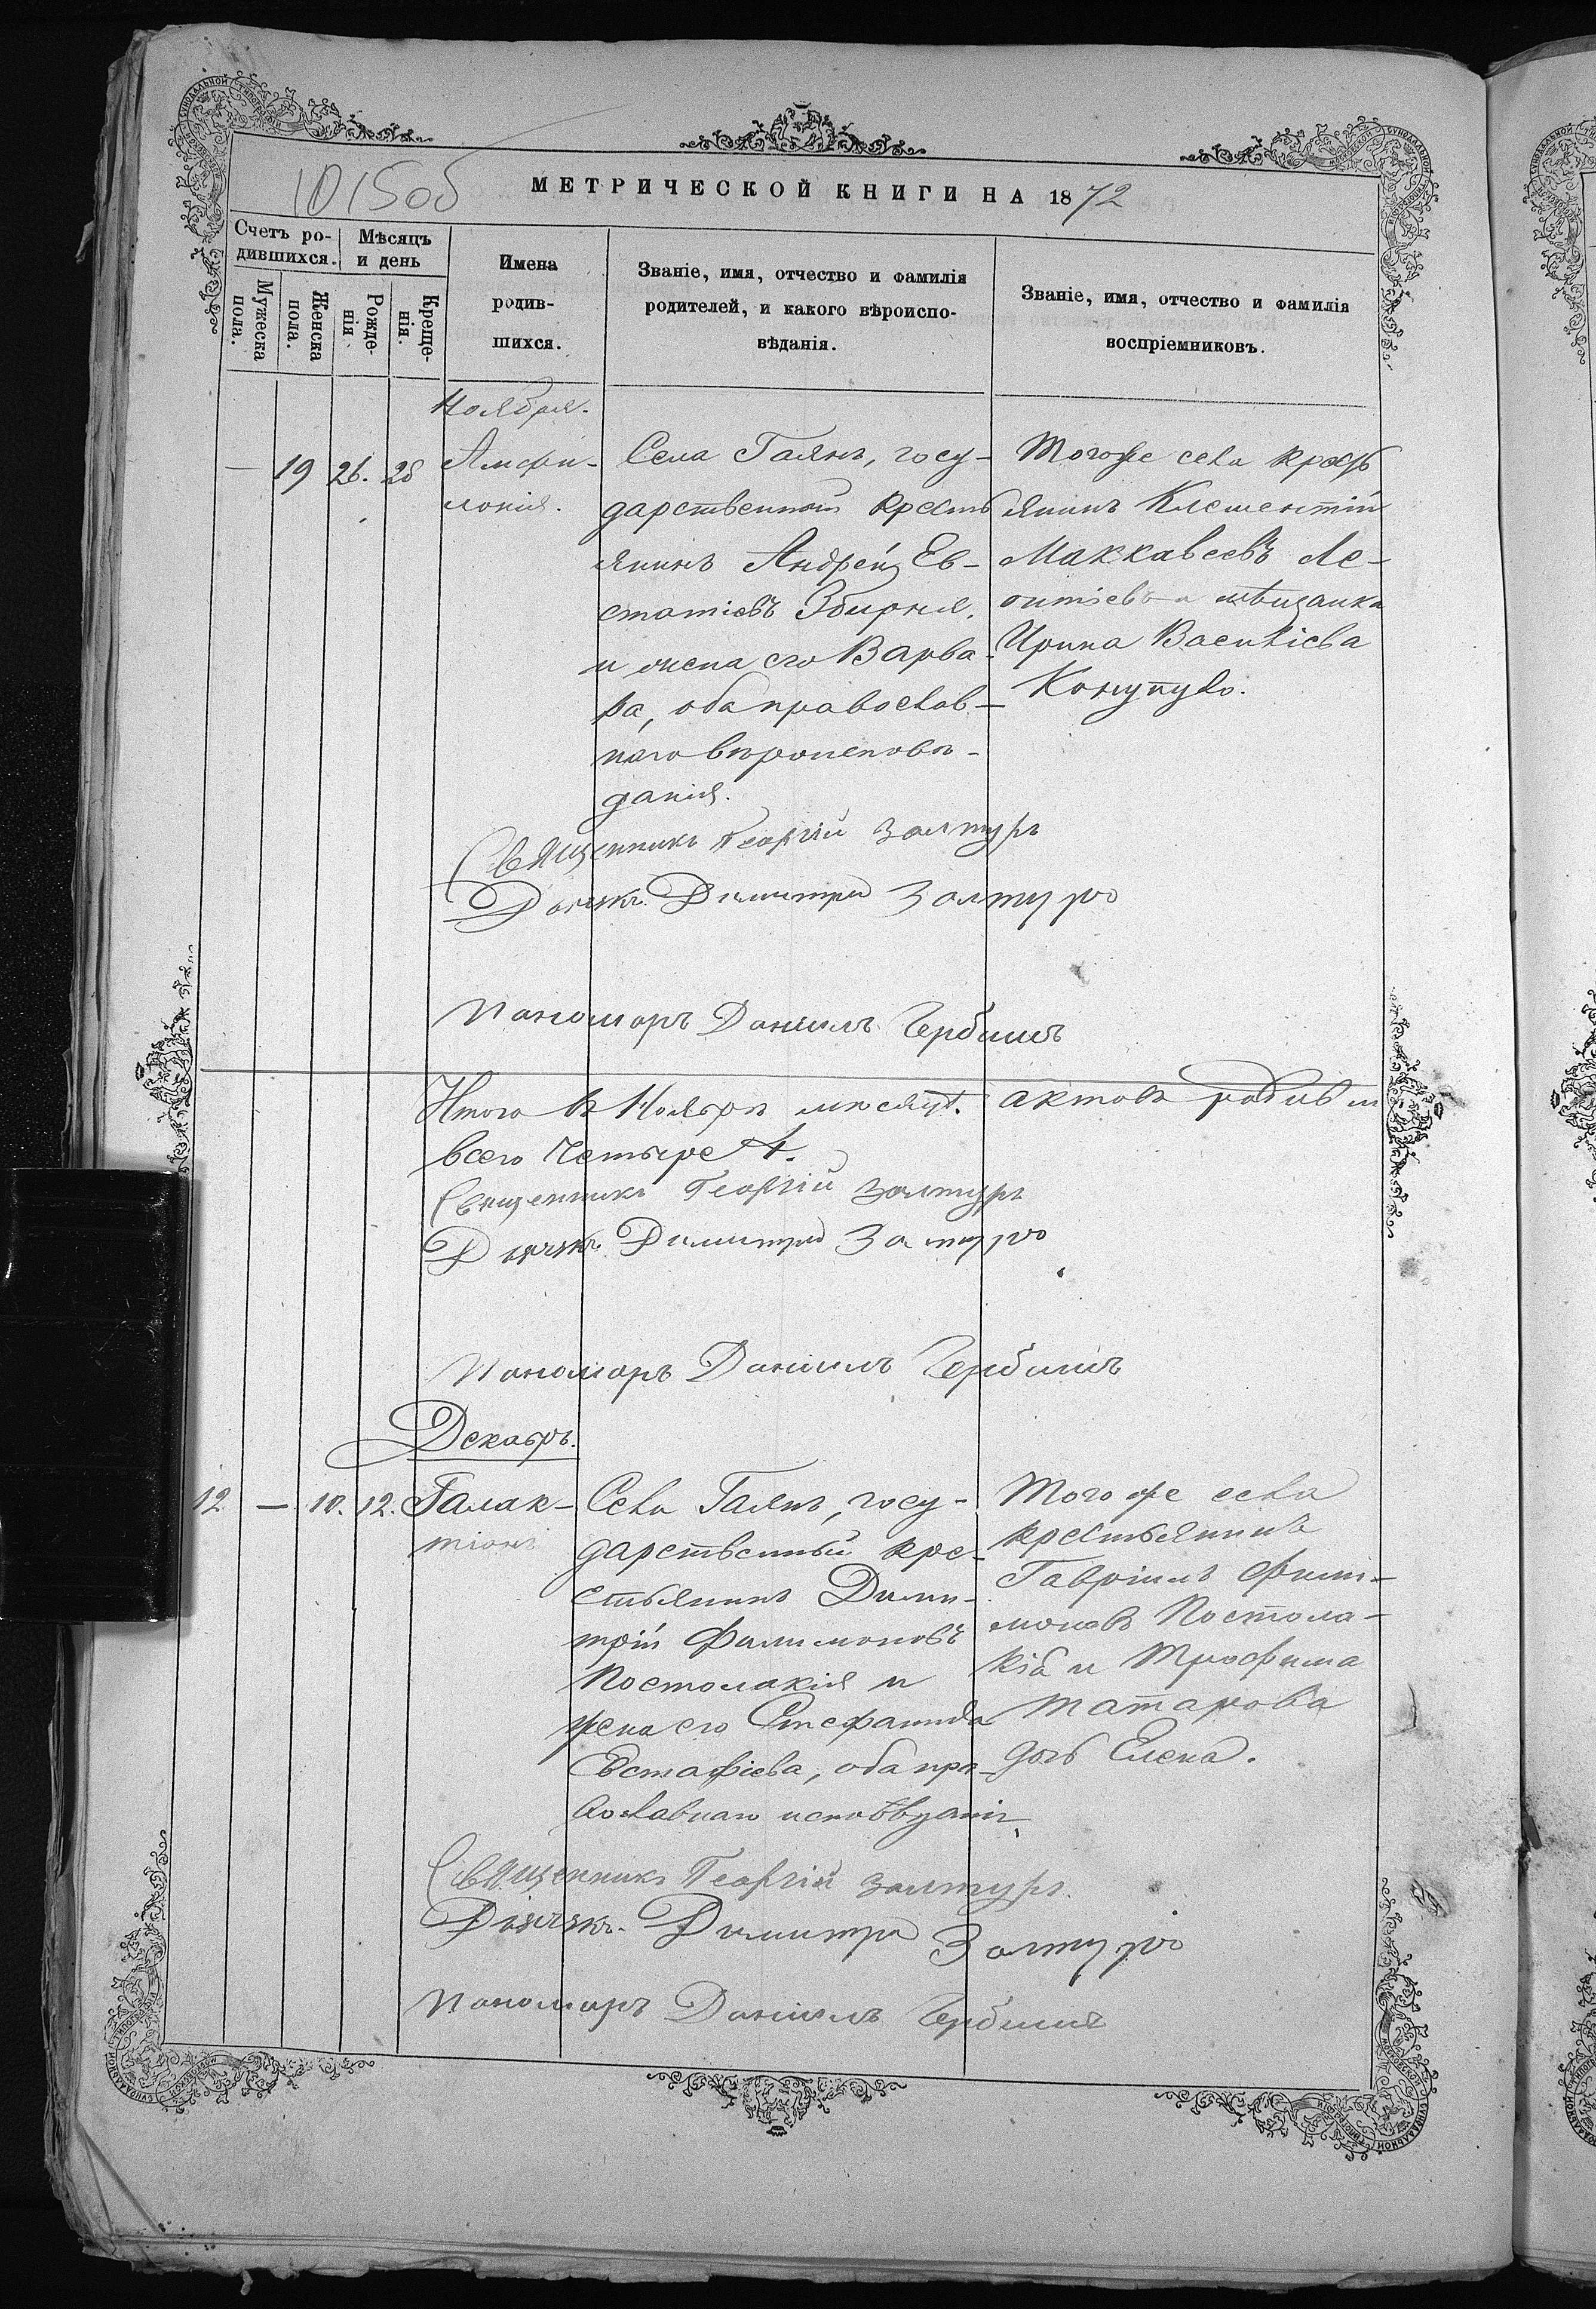 1015об
МЕТРИЧЕСКОЙ КНИГИ НА 1872
Счетъ ро-
дившихся.
Мѣсяцъ
и день
Мужеска
пола.
Женска
пола.
Рожде-
нія
Креще-
нія.
Имена
родив-
шихся.
Званіе, имя, отчество и фамилія
родителей, и какого вѣроиспо-
вѣданія.
Званіе, имя, отчество и фамилія
воспріемниковъ.
Ноября.
— 19 26. 28
Амфи-
лохія.
Села Гаянъ, госу-
дарственный кресть
янинъ Андрей Ев-
статіевъ Збирня,
и жена его Варва-
ра, оба православ-
наго вѣроисповѣ-
данія.
Тогоже села крест
янинъ Клементій
Маккавеевъ Ле-
онтіевъ и мѣщанка
Ирина Василіева
Священникъ Георгій Залтуръ
Дьячекъ Димитрій Залтуръ
Пономарь Даніилъ Чербишъ
Итого въ Ноябрѣ мѣсяцѣ. актовъ родивш
всего Четыре 4.
Священникъ Георгій Залтуръ
Дьячекъ Димитрій Залтуръ
Пономарь Даніилъ Чербишъ
Декабрь.
12 — 10. 12.
Галак-
тіонъ
Села Гаянъ, госу-
дарственный кре-
стьянинъ Дими-
трій Филимоновъ
Постолакія и
жена его Стефанида
Евстафіева, оба пра-
вославнаго исповѣданія
Тогоже села
крестьянинъ
Гавріилъ Фили-
моновъ Постола-
кій и Трофима
Татарова
дочь Елена.
Священникъ Георгій Залтуръ.
Дьячекъ Димитрій Залтуръ
Пономарь Даніилъ Чербишъ